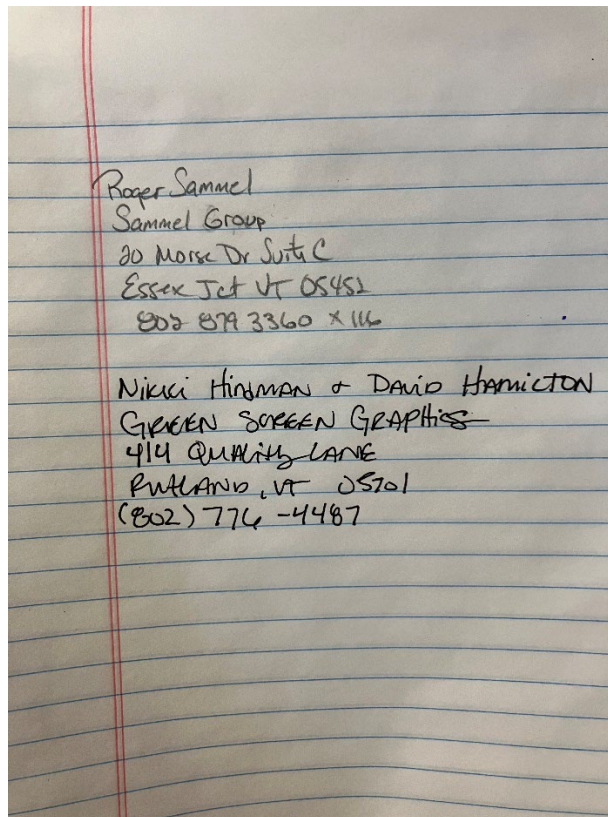 Roger Sammel
Sammel Group
20 Morse Dr Suite C
Essex Jct VT 05452
802 879 3360 x 116
Nikki Hindman & David Hamilton
GREEN SCREEN GRAPHICS
414 QUALITY LANE
RUTLAND, VT 05701
(802) 776-4487